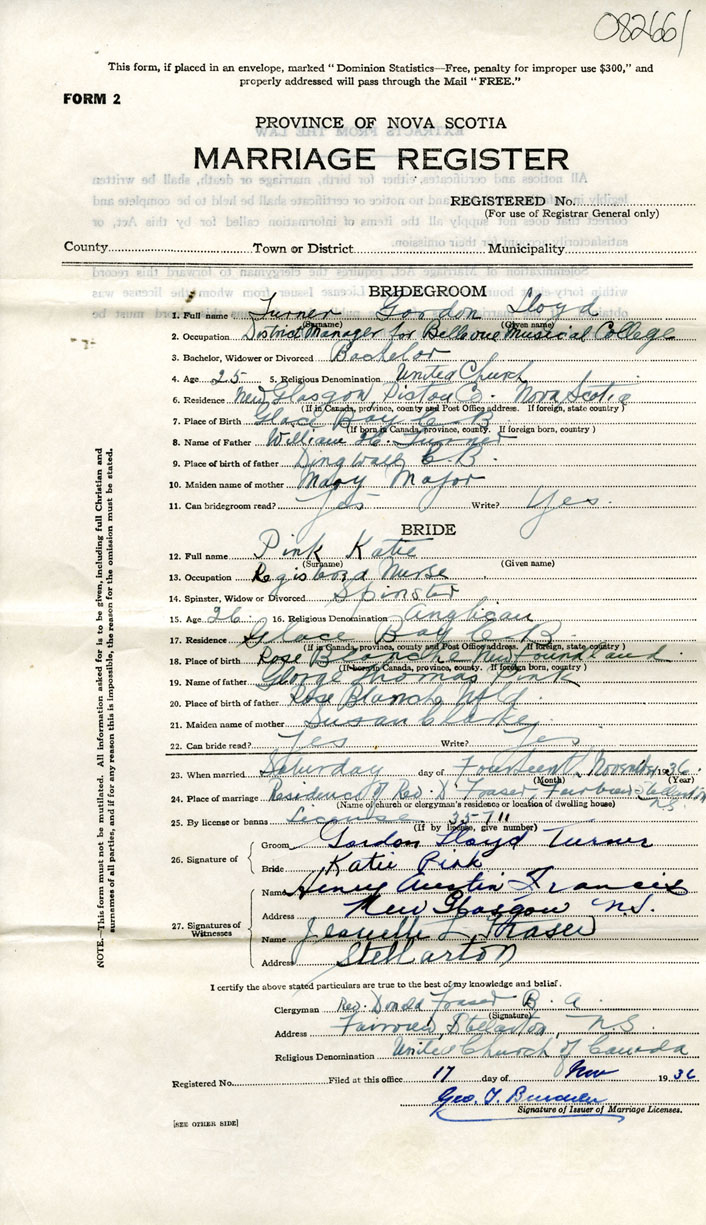 082661
This form, if placed in an envelope, marked "Dominion Statistics—Free, penalty for improper use $300," and
properly addressed will pass through the Mail "FREE."
FORM 2
PROVINCE OF NOVA SCOTIA
MARRIAGE REGISTER
REGISTERED No.
(For use of Registrar General only)
County Town or District Municipality
BRIDEGROOM
1. Full name Turner Gordon Lloyd
(Surname) (Given name)
2. Occupation District Manager for Bellevue Musical College
3. Bachelor, Widower or Divorced Bachelor
4. Age 25 5. Religious Denomination United Church
6. Residence New Glasgow, Pictou Co. Nova Scotia
(If in Canada, province, county and Post Office address. If foreign, state country)
7. Place of Birth Glace Bay C. B.
(If born in Canada, province, county. If foreign born, country)
8. Name of Father William H. Turner
9. Place of birth of father Dingwall C.B.
10. Maiden name of mother Mary Major
11. Can bridegroom read? Yes Write? Yes.
BRIDE
12. Full name Pink Katie
(Surname) (Given name)
13. Occupation Registered Nurse
14. Spinster, Widow or Divorced Spinster
15. Age 26. 16. Religious Denomination Anglican
17. Residence Glace Bay C. B.
(If in Canada, province, county and Post Office address. If foreign, state country)
18. Place of birth Rose Blanche Newfoundland.
(If born in Canada, province, county. If foreign born, country)
19. Name of father George Thomas Pink
20. Place of birth of father Rose Blanche Nfld.
21. Maiden name of mother Susan
22. Can bride read? Yes Write? Yes
23. When married Saturday day of Fourteenth, November 1936.
(Month) (Year)
24. Place of marriage Residence of Rev. D. Fraser, Fairview Stellarton
N.S.
(Name of church or clergyman's residence or location of dwelling house)
25. By license or banns License 35711
(If by license, give number)
26. Signature of
Groom Gordon Lloyd Turner
Bride Katie Pink
27. Signatures of Witnesses
Name Henry Austin Francis
Address New Glasgow N.S.
Name L. Fraser
Address Stellarton
I certify the above stated particulars are true to the best of my knowledge and belief.
Clergyman Rev. Donald Fraser B. A.
(Signature)
Address Fairview, Stellarton, N.S.
Religious Denomination United Church of Canada
Registered No. Filed at this office 17 day of Nov 1936
Geo. T.
Signature of Issuer of Marriage Licenses.
[SEE OTHER SIDE]
NOTE.—This form must not be mutilated. All information asked for is to be given, including full Christian and
surnames of all parties, and if for any reason this is impossible, the reason for the omission must be stated.